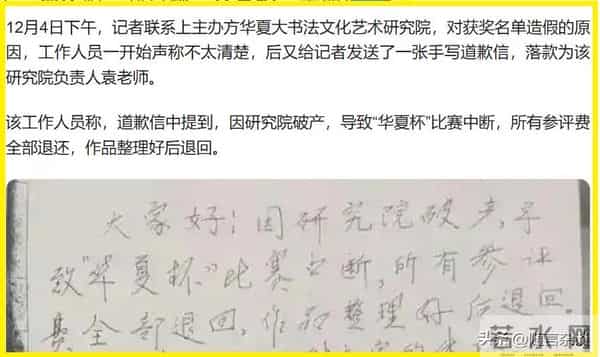 12月4日下午，记者联系上主办方华夏大书法文化艺术研究院，对获奖名单造假的原
因，工作人员一开始声称不太清楚，后又给记者发送了一张手写道歉信，落款为该
研究院负责人袁老师。
该工作人员称，道歉信中提到，因研究院破产，导致“华夏杯”比赛中断，所有参评费
全部退还，作品整理好后退回。
大家好！因研究院破产，导
致“华夏杯”比赛中断，所有参评
费全部退回，作品整理好后退回。
头条
若水网